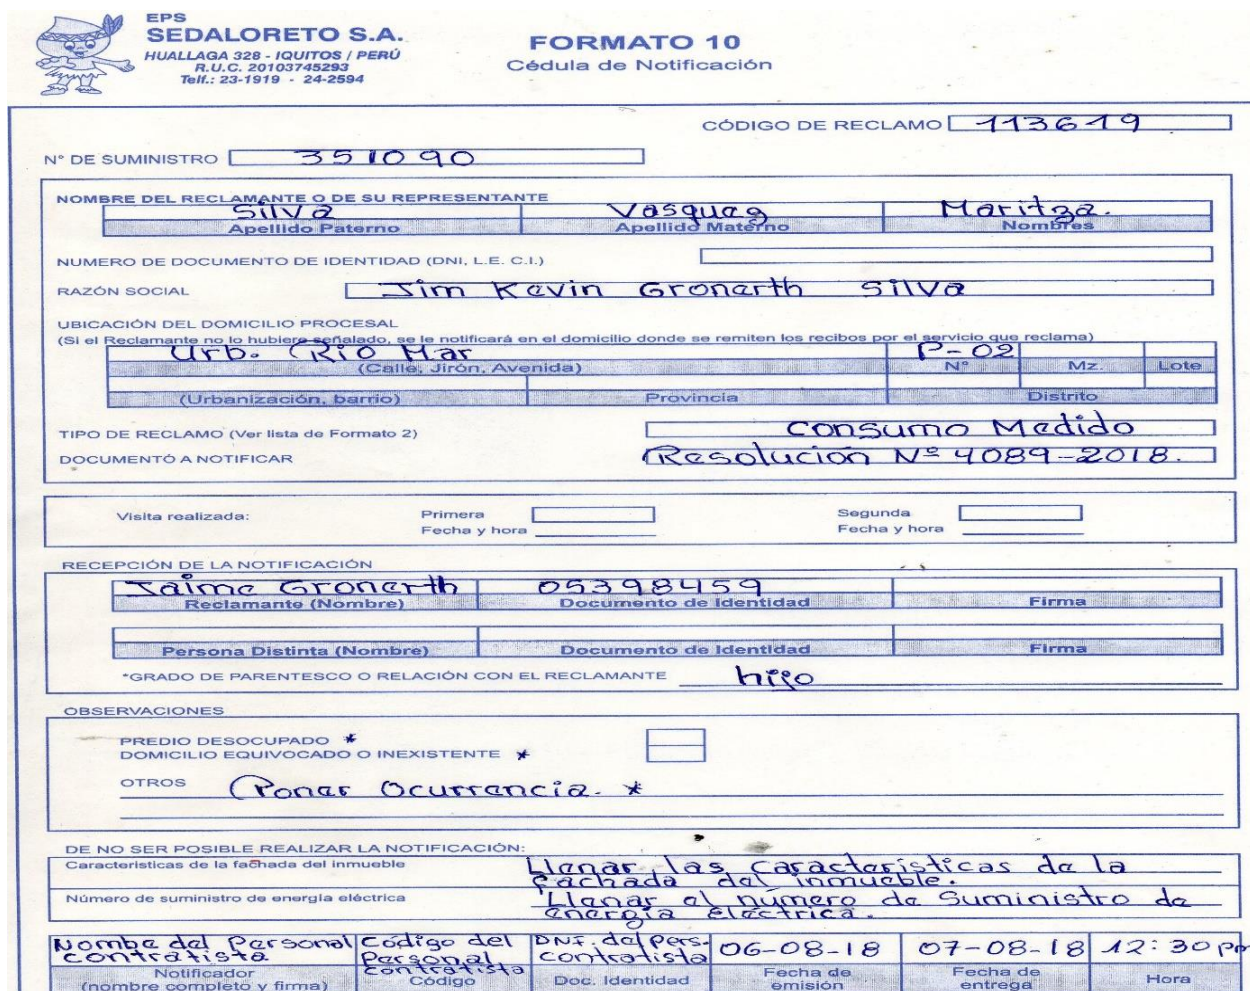 EPS
SEDALORETO S.A.
HUALLAGA 328 - IQUITOS / PERÚ
R.U.C. 20103745293
Telf.: 23-1919 - 24-2594
FORMATO 10
Cédula de Notificación
CÓDIGO DE RECLAMO 113619
N° DE SUMINISTRO 351090
NOMBRE DEL RECLAMANTE O DE SU REPRESENTANTE
Silva Vasquez Maritza.
Apellido Paterno Apellido Materno Nombres
NUMERO DE DOCUMENTO DE IDENTIDAD (DNI, L.E. C.I.)
RAZÓN SOCIAL Jim Kevin Gronerth Silva
UBICACIÓN DEL DOMICILIO PROCESAL
(Si el Reclamante no lo hubiere señalado, se le notificará en el domicilio donde se remiten los recibos por el servicio que reclama)
Urb. Rio Mar P-02
(Calle, Jirón, Avenida) N° Mz. Lote
(Urbanización, barrio) Provincia Distrito
TIPO DE RECLAMO (Ver lista de Formato 2) Consumo Medido
DOCUMENTO A NOTIFICAR Resolución Nº 4089-2018.
Visita realizada: Primera Segunda
Fecha y hora Fecha y hora
RECEPCIÓN DE LA NOTIFICACIÓN
Jaime Gronerth 05398459
Reclamante (Nombre) Documento de Identidad Firma
Persona Distinta (Nombre) Documento de Identidad Firma
*GRADO DE PARENTESCO O RELACIÓN CON EL RECLAMANTE hijo
OBSERVACIONES
PREDIO DESOCUPADO *
DOMICILIO EQUIVOCADO O INEXISTENTE *
OTROS Poner Ocurrencia. *
DE NO SER POSIBLE REALIZAR LA NOTIFICACIÓN:
Caracteristicas de la fachada del inmueble Llenar las características de la
fachada del inmueble.
Número de suministro de energía eléctrica Llenar el número de Suministro de
energía eléctrica.
Nombe del Personal contratista Código del Personal contratista DNI. del Pers. contratista 06-08-18 07-08-18 12:30 pm
Notificador (nombre completo y firma) Código Doc. Identidad Fecha de emisión Fecha de entrega Hora